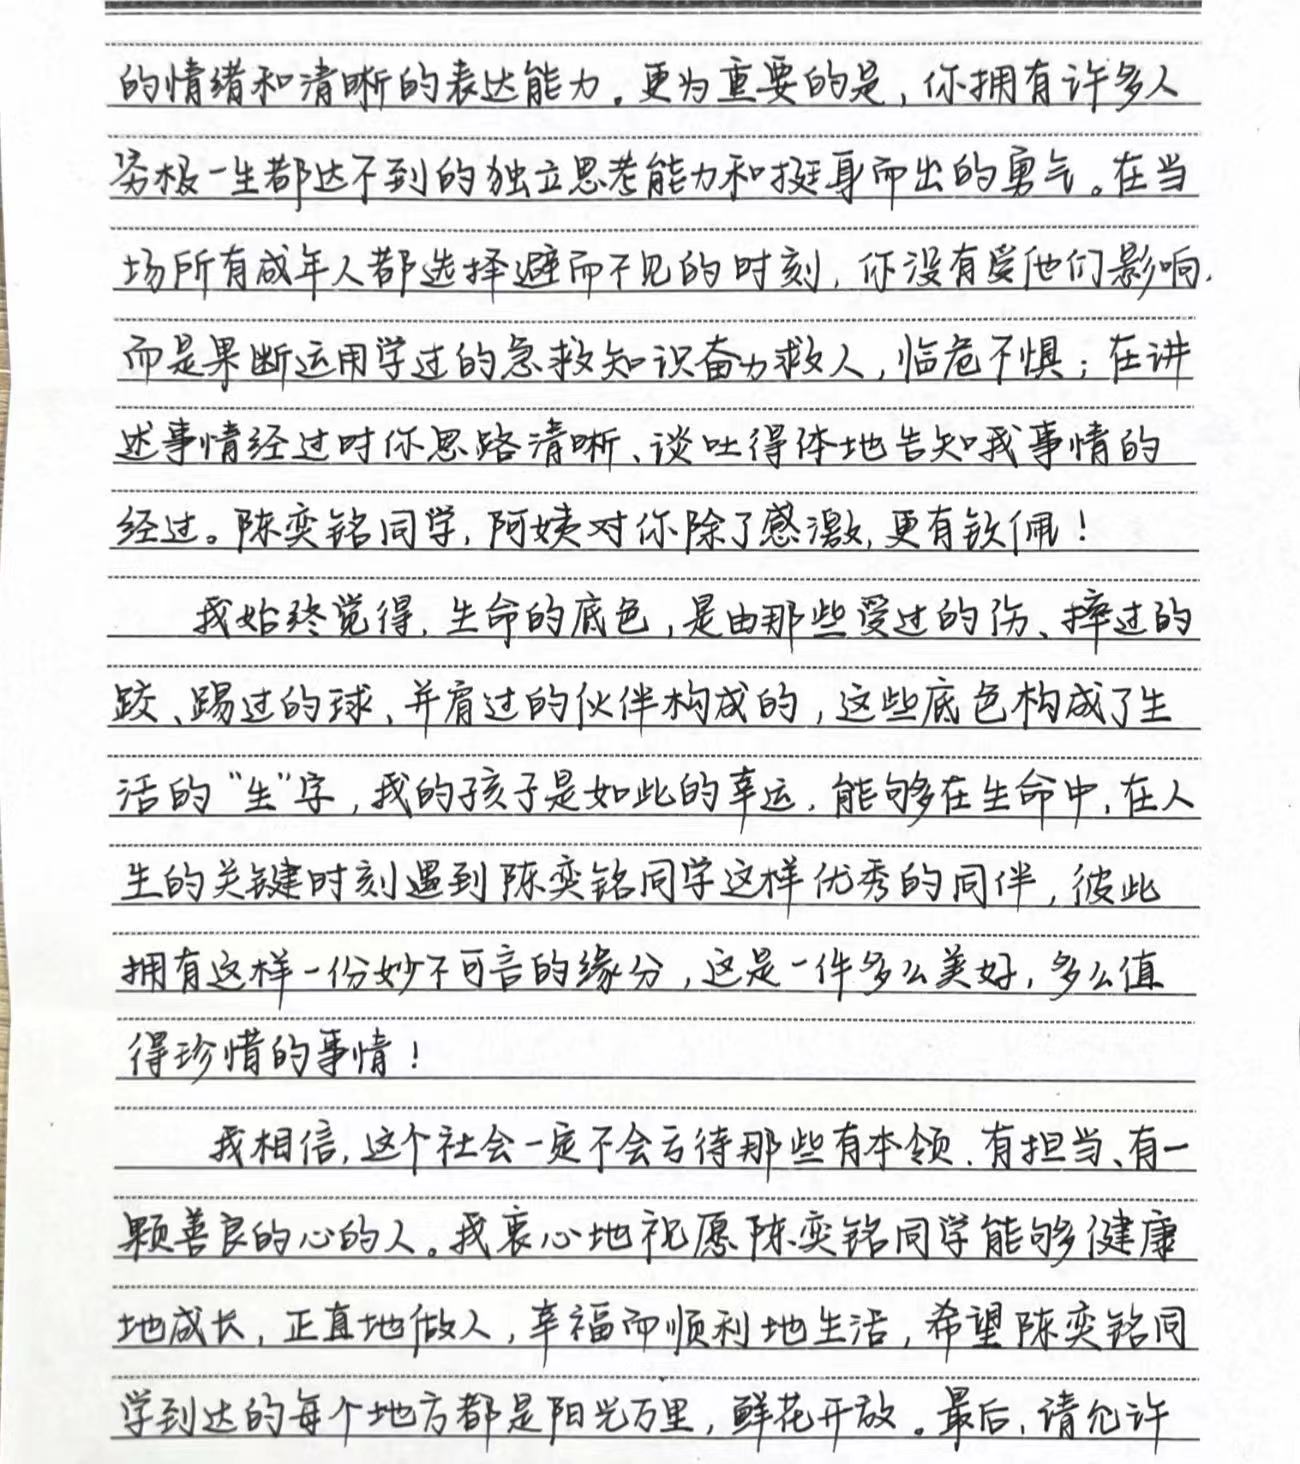 的情绪和清晰的表达能力。更为重要的是，你拥有许多人
穷极一生都达不到的独立思考能力和挺身而出的勇气。在当
场所有成年人都选择避而不见的时刻，你没有受他们影响，
而是果断运用学过的急救知识奋力救人，临危不惧；在讲
述事情经过时你思路清晰、谈吐得体地告知我事情的
经过。陈奕铭同学，阿姨对你除了感激，更有钦佩！
我始终觉得，生命的底色，是由那些受过的伤、摔过的
跤、踢过的球、并肩过的伙伴构成的，这些底色构成了生
活的“生”字，我的孩子是如此的幸运，能够在生命中，在人
生的关键时刻遇到陈奕铭同学这样优秀的同伴，彼此
拥有这样一份妙不可言的缘分，这是一件多么美好，多么值
得珍惜的事情！
我相信，这个社会一定不会亏待那些有本领、有担当、有一
颗善良的心的人。我衷心地祝愿陈奕铭同学能够健康
地成长，正直地做人，幸福而顺利地生活，希望陈奕铭同
学到达的每个地方都是阳光万里，鲜花开放。最后，请允许